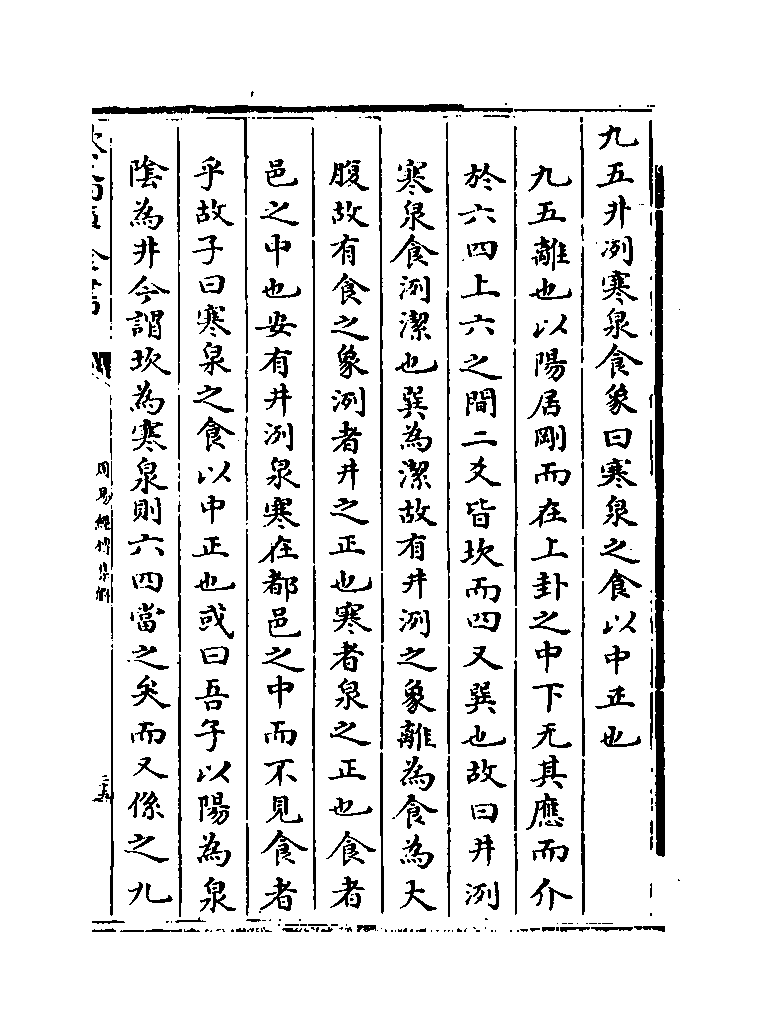 九五井冽寒泉食象曰寒泉之食以中正也
九五離也以陽居剛而在上卦之中下无其應而介
於六四上六之間二爻皆坎而四又巽也故曰井冽
寒泉食冽潔也巽為潔故有井冽之象離為食為大
腹故有食之象冽者井之正也寒者泉之正也食者
邑之中也安有井冽泉寒在都邑之中而不見食者
乎故子曰寒泉之食以中正也或曰吾子以陽為泉
陰為井今謂坎為寒泉則六四當之矣而又係之九
周易經傳集解